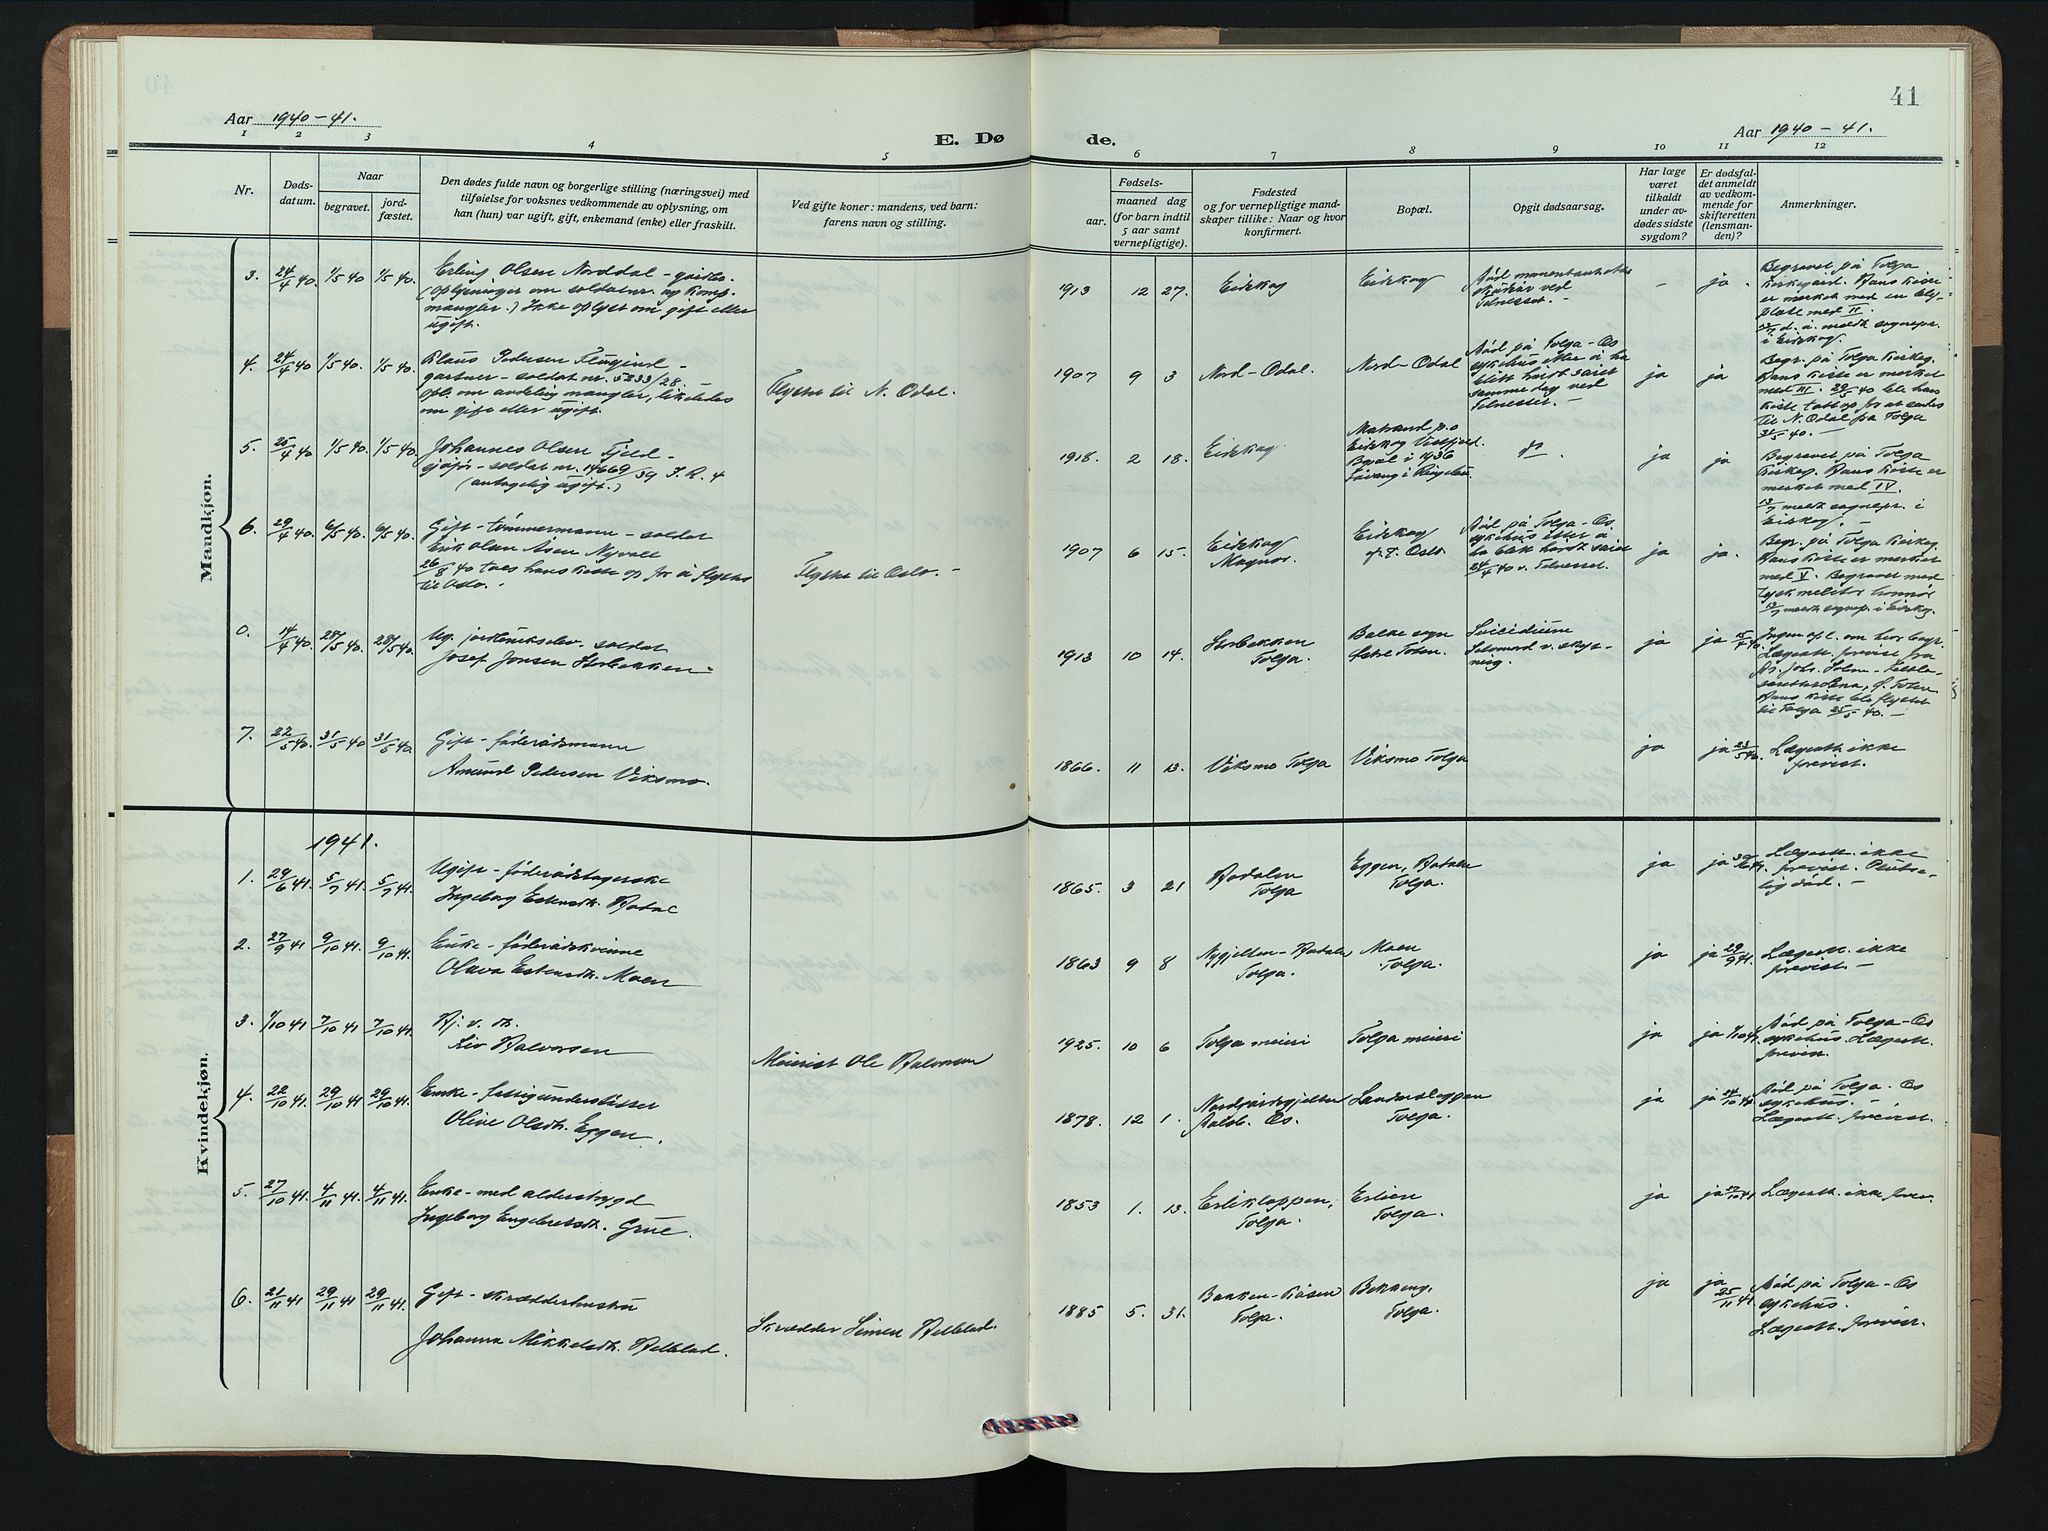 41
Aar 1940-41.
E. Dø de.
Aar 1940-41.
1 2 3 4 5 6 7 8 9 10 11 12
Nr.
Døds-
datum.
Naar
begravet.
jord-
fæstet.
Den dødes fulde navn og borgerlige stilling (næringsvei) med
tilføielse for voksnes vedkommende av oplysning, om
han (hun) var ugift, gift, enkemand (enke) eller fraskilt.
Ved gifte koner: mandens, ved barn:
farens navn og stilling.
Fødsels-
aar.
maaned dag
(for barn indtil
5 aar samt
vernepligtige).
Fødested
og for vernepligtige mand-
skaper tillike: Naar og hvor
konfirmert.
Bopæl.
Opgit dødsaarsag.
Har læge
været
tilkaldt
under av-
dødes sidste
sygdom?
Er dødsfal-
det anmeldt
av vedkom-
mende for
skifteretten
(lensman-
den)?
Anmerkninger.
Mandkjøn.
3. 24/4 40. 1/5 40 1/5 40.
Erling Olsen Norddal -
(Oplysninger om soldatnr. og komp.
mangler.) Ikke oplyst om gift eller
ugift.
1913 12 27. Eidskog Eidskog
- ja.
Begravet på Tolga
Kirkegård. Hans kiste
er merket med en bly-
plate med II.
i Eidskog.
4. 24/4 40 1/5 40. 1/5 40.
Klaus Pedersen
gartner - soldat nr. 5233/28.
opl. om avdeling mangler, likeledes
om gift eller ugift.
Flyttet til N. Odal.
1907 9 3 Nord-Odal. Nord-Odal
Død på Tolga-Os
sykehus etter å ha
blitt hårdt såret
samme dag ved
Tolnesset. -
ja ja
Begr. på Tolga Kirkeg.
Hans kiste er merket
med III. 29/5 40 ble hans
kiste tatt op for at sendes
til N. Odal fra Tolga
31/5 40. -
5. 25/4 40 1/5 40. 1/5 40.
Johannes Olsen Fjeld -
sjåfør - soldat nr. 14669/39 I.R. 4
(antagelig ugift.)
1918. 2 18. Eidskog
Matrand p.o
Eidskog
Bopæl i 1936
ja ja
Begravet på Tolga
Kirkeg. Hans kiste er
merket med IV.
13/7 meldt sognepr. i
Eidskog. -
6. 29/4 40. 6/5 40. 6/5 40.
Gift - tømmermann - soldat
Erik Olsen Åsen Nyvoll
26/8 40 toes hans kiste op for å flyttes
til Oslo. -
Flyttet til Oslo. -
1907 6 15. Eidskog
Magnor.
Eidskog
p.t. Oslo
Død på Tolga-Os.
sykehus etter å
ha blitt hårdt såret
24/4 40 v. Tolnesset.
ja ja.
Begr. på Tolga Kirkeg.
Hans kiste er merket
med V. Begravet med
tysk militær honnør
13/7 meldt sognep. i Eidskog.
0. 14/4 40. 28/5 40. 28/5 40.
Ug. jordbrukselev - soldat
Josef Jonsen Storbekken -
1913 10 14. Storbekken
Tolga.
Balke sogn
Østre Toten.
Suicidium
Selvmord v. skyt-
ning.
ja ja 15/4 40.
Ingen opl. om hvor begr.
Lægeatt. forevist fra
Hans kiste ble flyttet
til Tolga 25/5 40. -
7. 22/5 40. 31/5 40 31/5 40.
Gift - føderådsmann
Amund Pedersen Viksmo.
1866. 11 13. Viksmo Tolga Viksmo Tolga
ja ja 23/5 40.
Lægeatt. ikke
forevist.
Kvindekjøn.
1941.
1. 29/6 41. 5/7 41. 5/7 41.
Ugift - føderådstagerske
Ingeborg Estensdtr. Hodal
1865. 3 21 Hodalen
Tolga
Eggen, Hodalen
Tolga.
ja ja 30/6 41.
Lægeatt. ikke
forevist. Plutse-
lig død. -
2. 27/9 41 9/10 41. 9/10 41.
Enke - føderådskvinne
Olava Estensdtr. Moen
1863 9 8 Nygjelten - Hodalen
Tolga.
Moen
Tolga.
ja ja 29/9 41.
Lægeatt. ikke
forevist. -
3. 1/10 41 7/10 41 7/10 41.
Hj. v. dtr.
Liv Halvorsen
Meierist Ole Halvorsen
1925. 10 6 Tolga meieri Tolga meieri
ja ja 1/10 41
Død på Tolga-Os
sykehus. Lægeatt.
forevist.
4. 22/10 41. 29/10 41 29/10 41.
Enke - fattigunderstøttet
Oline Olsdtr. Eggen.
1878. 12 1.
Os.
Tolga.
ja ja 24/10 41.
Død på Tolga-Os
sykehus. -
Lægeatt. forevist.
5. 27/10 41. 4/11 41. 4/11 41.
Enke - med alderstrygd
Ingeborg Engebretsdtr. Grue.
1853 1. 13. Erlikloppen,
Tolga.
Erlien
Tolga.
ja ja
Lægeatt. ikke forev.
6. 21/11 41 29/11 41 29/11 41.
Gift - skrædderhustru
Johanna Mikkelsdtr. Helstad.
Skrædder Simen Helstad.
1885 5. 31. Bakken-Kåsen
Tolga.
Bekkeng,
Tolga.
ja ja 25/11 41.
Død på Tolga-Os
sykehus.
Lægeatt. forevist.